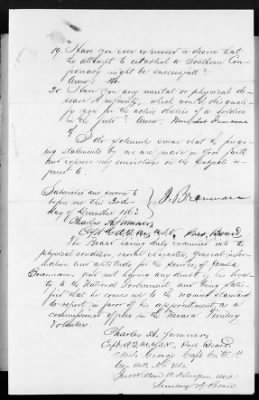 19. Have you ever expressed a desire that
the attempt to establish a Southern Con-
federacy might be successful?
Answ: No.
20. Have you any mental or physical dis-
ease or infirmity, which would disquali-
fy you for the active duties of a soldier
in the field? Answ:
I do solemnly swear that the forego-
ing statements by me are made in good faith
and express my convictions on the subjects re-
ferred to
Subscribed and sworn to
before me this
day of December 1863
J. Brannan
Charles A. Sumner
Capt & A.Q.M. Pres. Board.
The Board having duly examined into the
physical condition, moral character, general inform-
ation and aptitude for the service, of James
Brannan, and not having any doubt of his loyal-
ty to the National Government, and being satis-
fied that he comes up to the required standard
do report in favor of his appointment as a
commissioned officer in the Nevada Territory
Volunteers
Charles A. Sumner,
Capt. A.Q.M. Pres. Board
George Capt